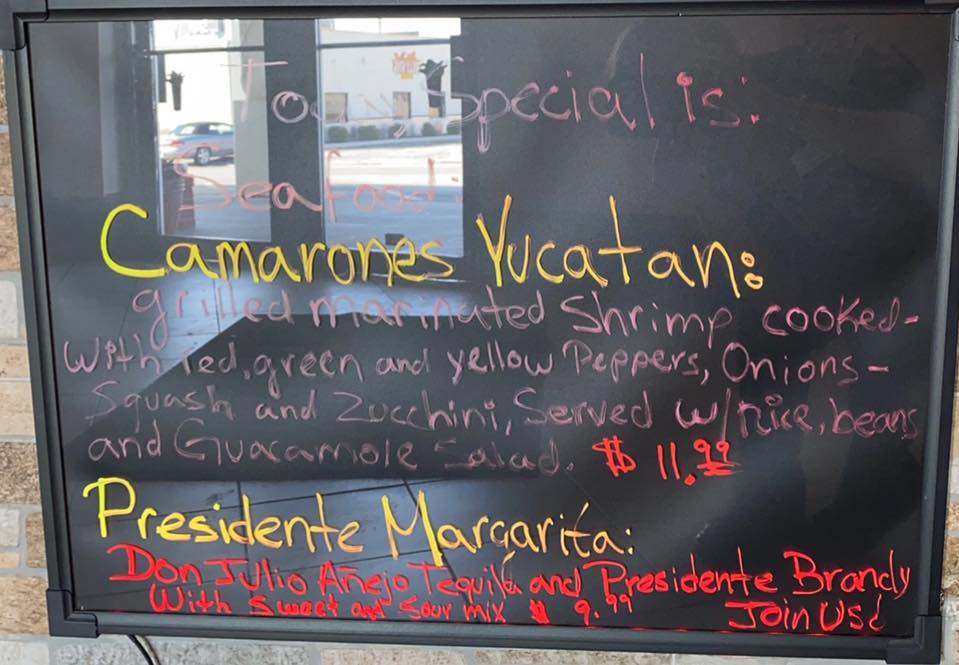 Today Special is:
Seafood.
Camarones Yucatan:
grilled marinated Shrimp cooked-
With red, green and yellow Peppers, Onions-
Squash and Zucchini, Served w/rice, beans
and Guacamole Salad. $ 11.99
Presidente Margarita:
Don Julio Añejo Tequila and Presidente Brandy
With Sweet and Sour mix $ 9.99 Join Us!